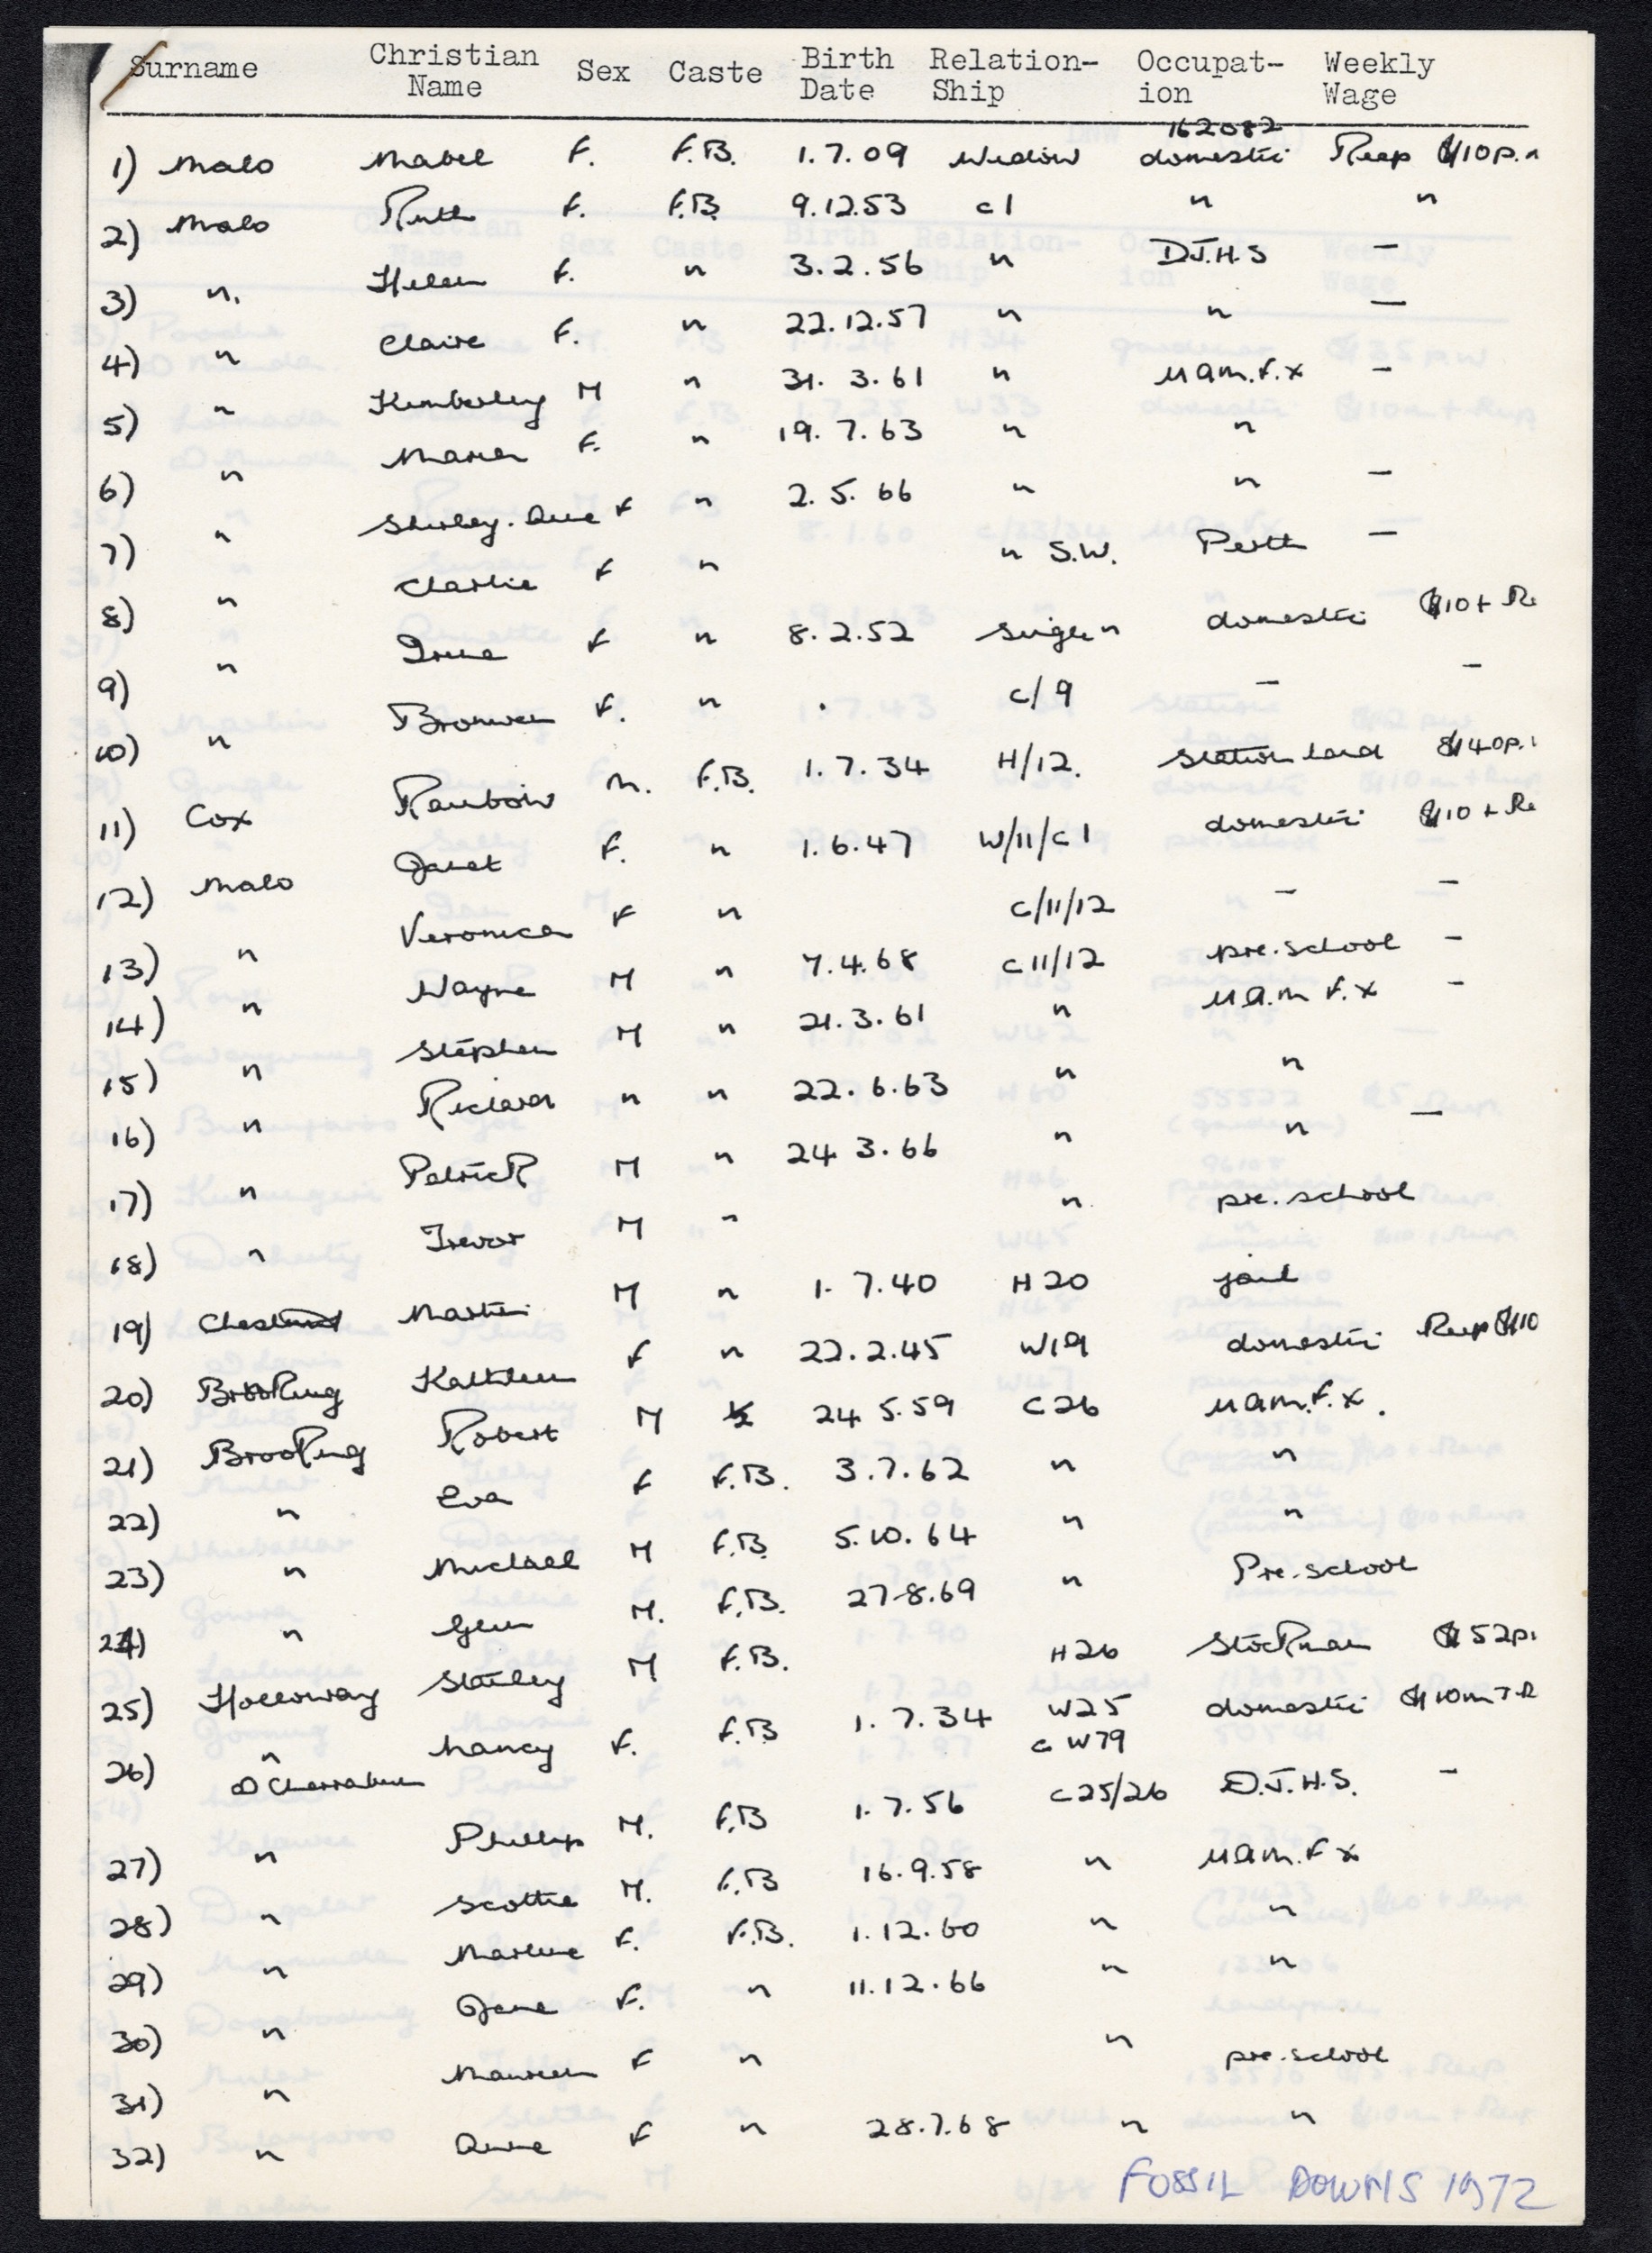 Surname Christian Name Sex Caste Birth Date Relation-Ship Occupat-ion Weekly Wage
162082
1) Malo Mabel F. F.B. 1.7.09 Widow domestic Keep $10 p.
2) Malo Ruth F. F.B. 9.12.53 c1 " "
3) " Helen F. " 3.2.56 " D.J.H.S —
4) " Claire F. " 22.12.57 " " —
5) " Kimberley M " 31.3.61 " U am. F.x —
6) " Maria F. " 19.7.63 " "
7) " Shirley.Anne F " 2.5.66 " " —
8) " Charlie F " " S.W. Perth —
9) " Irene F " 8.2.52 Single " domestic $10 + Ke
10) " Bronwen F. " . c/9 — —
11) Cox Rainbow M. F.B. 1.7.34 H/12. Station hand $40 p.
12) Malo Janet F. " 1.6.47 W/11/c1 domestic $10 + Ke
13) " Veronica F " C/11/12 — —
14) " Wayne M " 7.4.68 C11/12 pre.school —
15) " Stephen M " 21.3.61 " U a.m F.x —
16) " Richard " " 22.6.63 " "
17) " Patrick M " 24 3.66 " " —
18) " Trevor M " " pre.school
19) Chestnut Martin M " 1.7.40 H20 jail
20) Brooking Kathleen F " 22.2.45 W19 domestic Keep $10
21) Brooking Robert M ½ 24 5.59 C26 U am. F.x.
22) " Eva F F.B. 3.7.62 " "
23) " Michael M F.B. 5.10.64 " "
24) " Glen M. F.B. 27.8.69 " Pre.school
25) Holloway Stanley M F.B. H26 Stockman $52 p
26) " Nancy F. F.B 1.7.34 W25 domestic $10
@ Cherrabun c W79
27) " Phillip M. F.B 1.7.56 C25/26 D.J.H.S. —
28) " Scottie M. F.B 16.9.58 " U am. F x
29) " Marlene F. F.B. 1.12.60 " "
30) " Jane F. " 11.12.66 " "
31) " Maureen F " " pre.school
32) " Anne F " 28.7.68 " "
FOSSIL DOWNS 1972